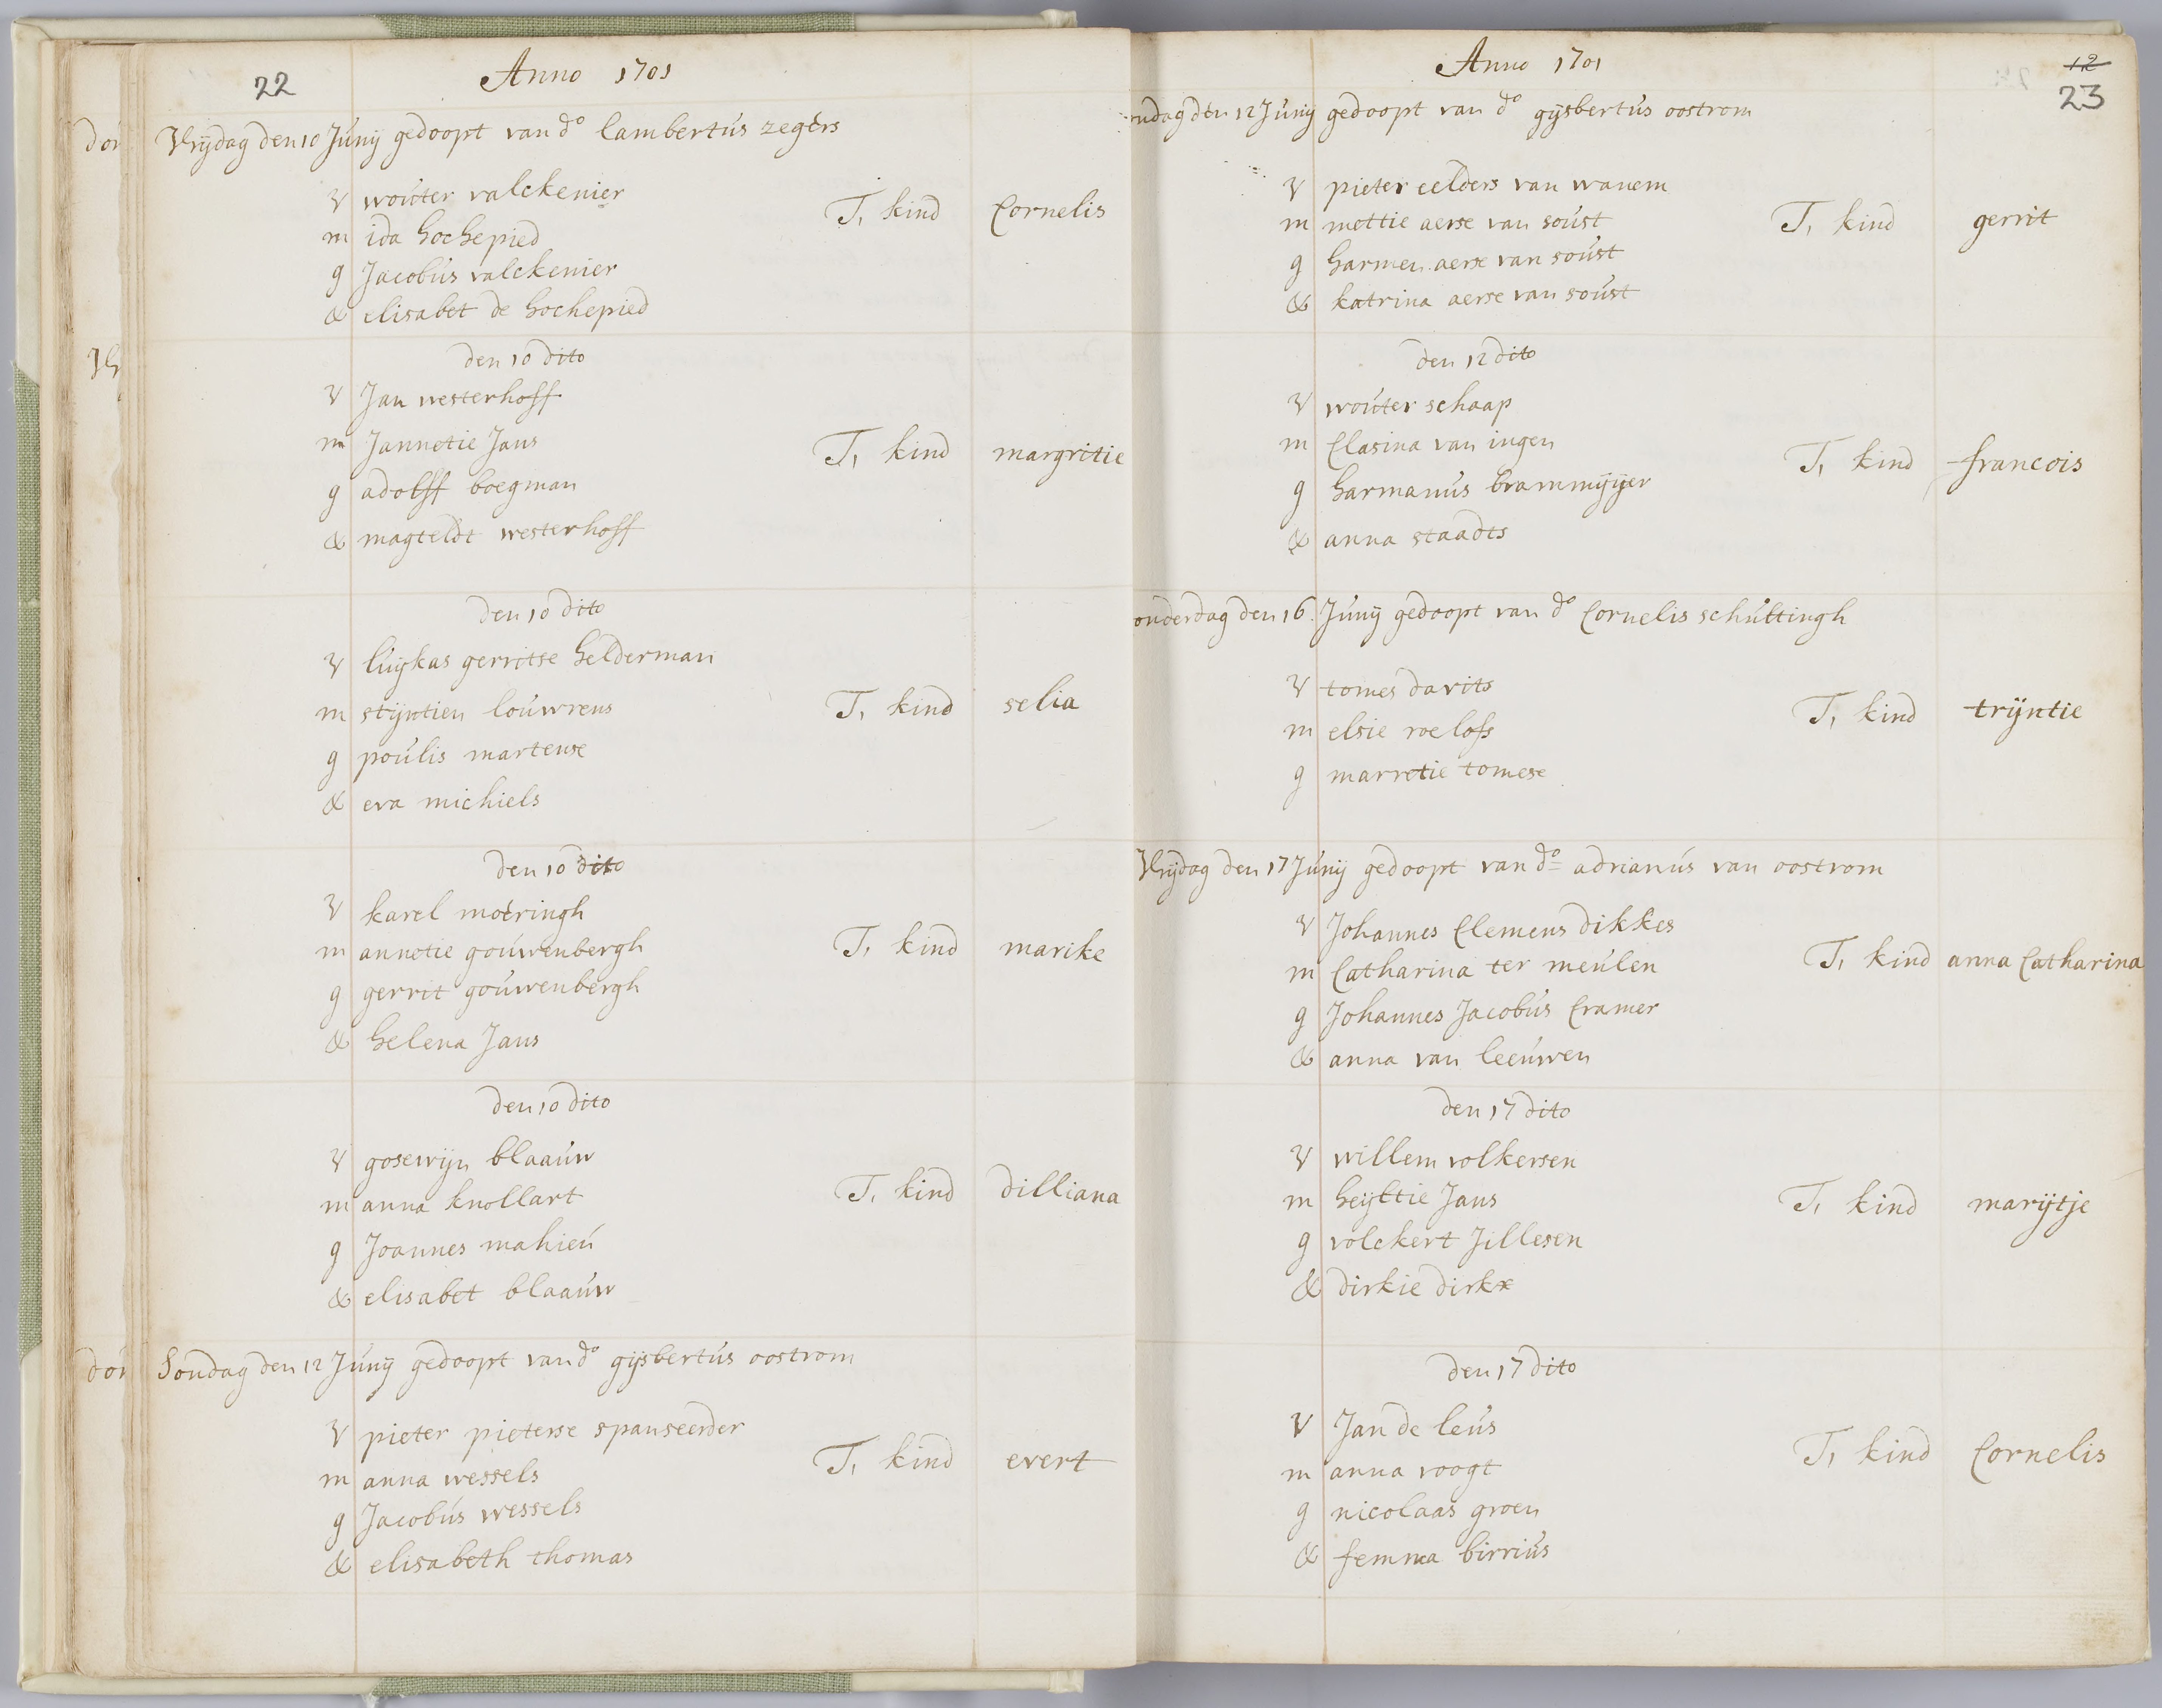 22
Anno 1701
Vrijdag den 10 Junij gedoopt van do lambertus zegers
V wouter valckenier
m ida hochepied
g Jacobus valckenier
& elisabet de hochepied
T, kind Cornelis
den 10 dito
V Jan westerhoff
m Jannetie Jans
g adolff boegman
& magteldt westerhoff
T, kind margritie
den 10 dito
V luijkas gerritse helderman
m stijntien louwrens
g poulis martense
& eva michiels
T, kind selia
den 10 dito
V karel moeringh
m annetie gouwenbergh
g gerrit gouwenbergh
& helena Jans
T, kind marike
den 10 dito
V gosewijn blaauw
m anna knollart
g Joannes mahieu
& elisabet blaauw
T, kind dilliana
Sondag den 12 Junij gedoopt van do gijsbertus oostrom
V pieter pieterse spanseerder
m anna wessels
g Jacobus wessels
& elisabeth thomas
T, kind evert
Anno 1701
12
23
ndag den 12 Junij gedoopt van do gijsbertus oostrom
V pieter eelders van wanem
m mettie aerse van soust
g harmen aerse van soust
& katrina aerse van soust
T, kind gerrit
den 12 dito
V wouter schaap
m Clasina van ingen
g harmanus brammijer
& anna staadts
T, kind francois
onderdag den 16 Junij gedoopt van do Cornelis schuttingh
V tomes davits
m elsie roelofs
g marretie tomese
T, kind trijntie
Vrijdag den 17 Junij gedoopt van do adrianus van oostrom
V Johannes Clemens dikkes
m Catharina ter meulen
g Johannes Jacobus Cramer
& anna van leeuwen
T, kind anna Catharina
den 17 dito
V willem volkersen
m heijltie Jans
g volckert Jillesen
& dirkie dirkx
T, kind marijtje
den 17 dito
V Jan de leus
m anna voogt
g nicolaas groen
& femma birrius
T, kind Cornelis